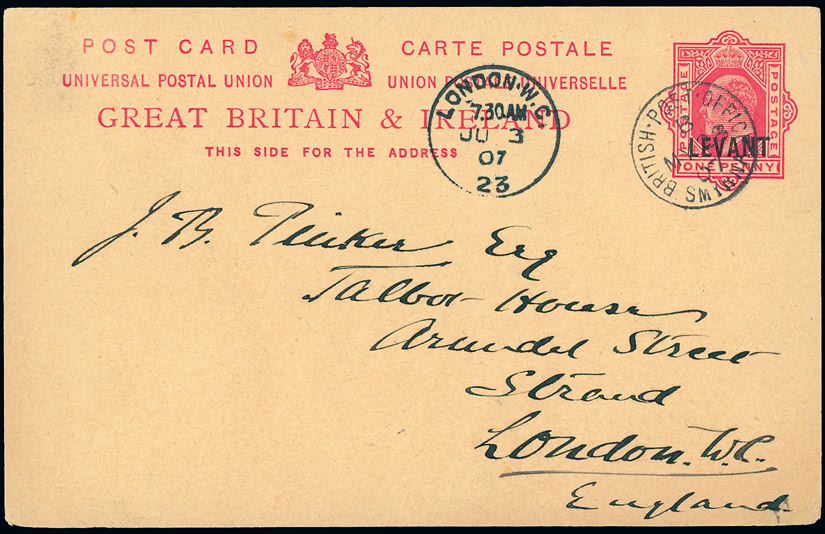 POST CARD CARTE POSTALE
UNIVERSAL POSTAL UNION UNION POSTALE UNIVERSELLE
GREAT BRITAIN & IRELAND
THIS SIDE FOR THE ADDRESS
LONDON.W.C.
7.30AM
JU 3
07
23
BRITISH·POST·OFFICE SMYRNA
POSTAGE POSTAGE
LEVANT
ONE PENNY
J. B. Pinker Esq
Talbot House
Arundel Street
Strand
London. W.C.
England